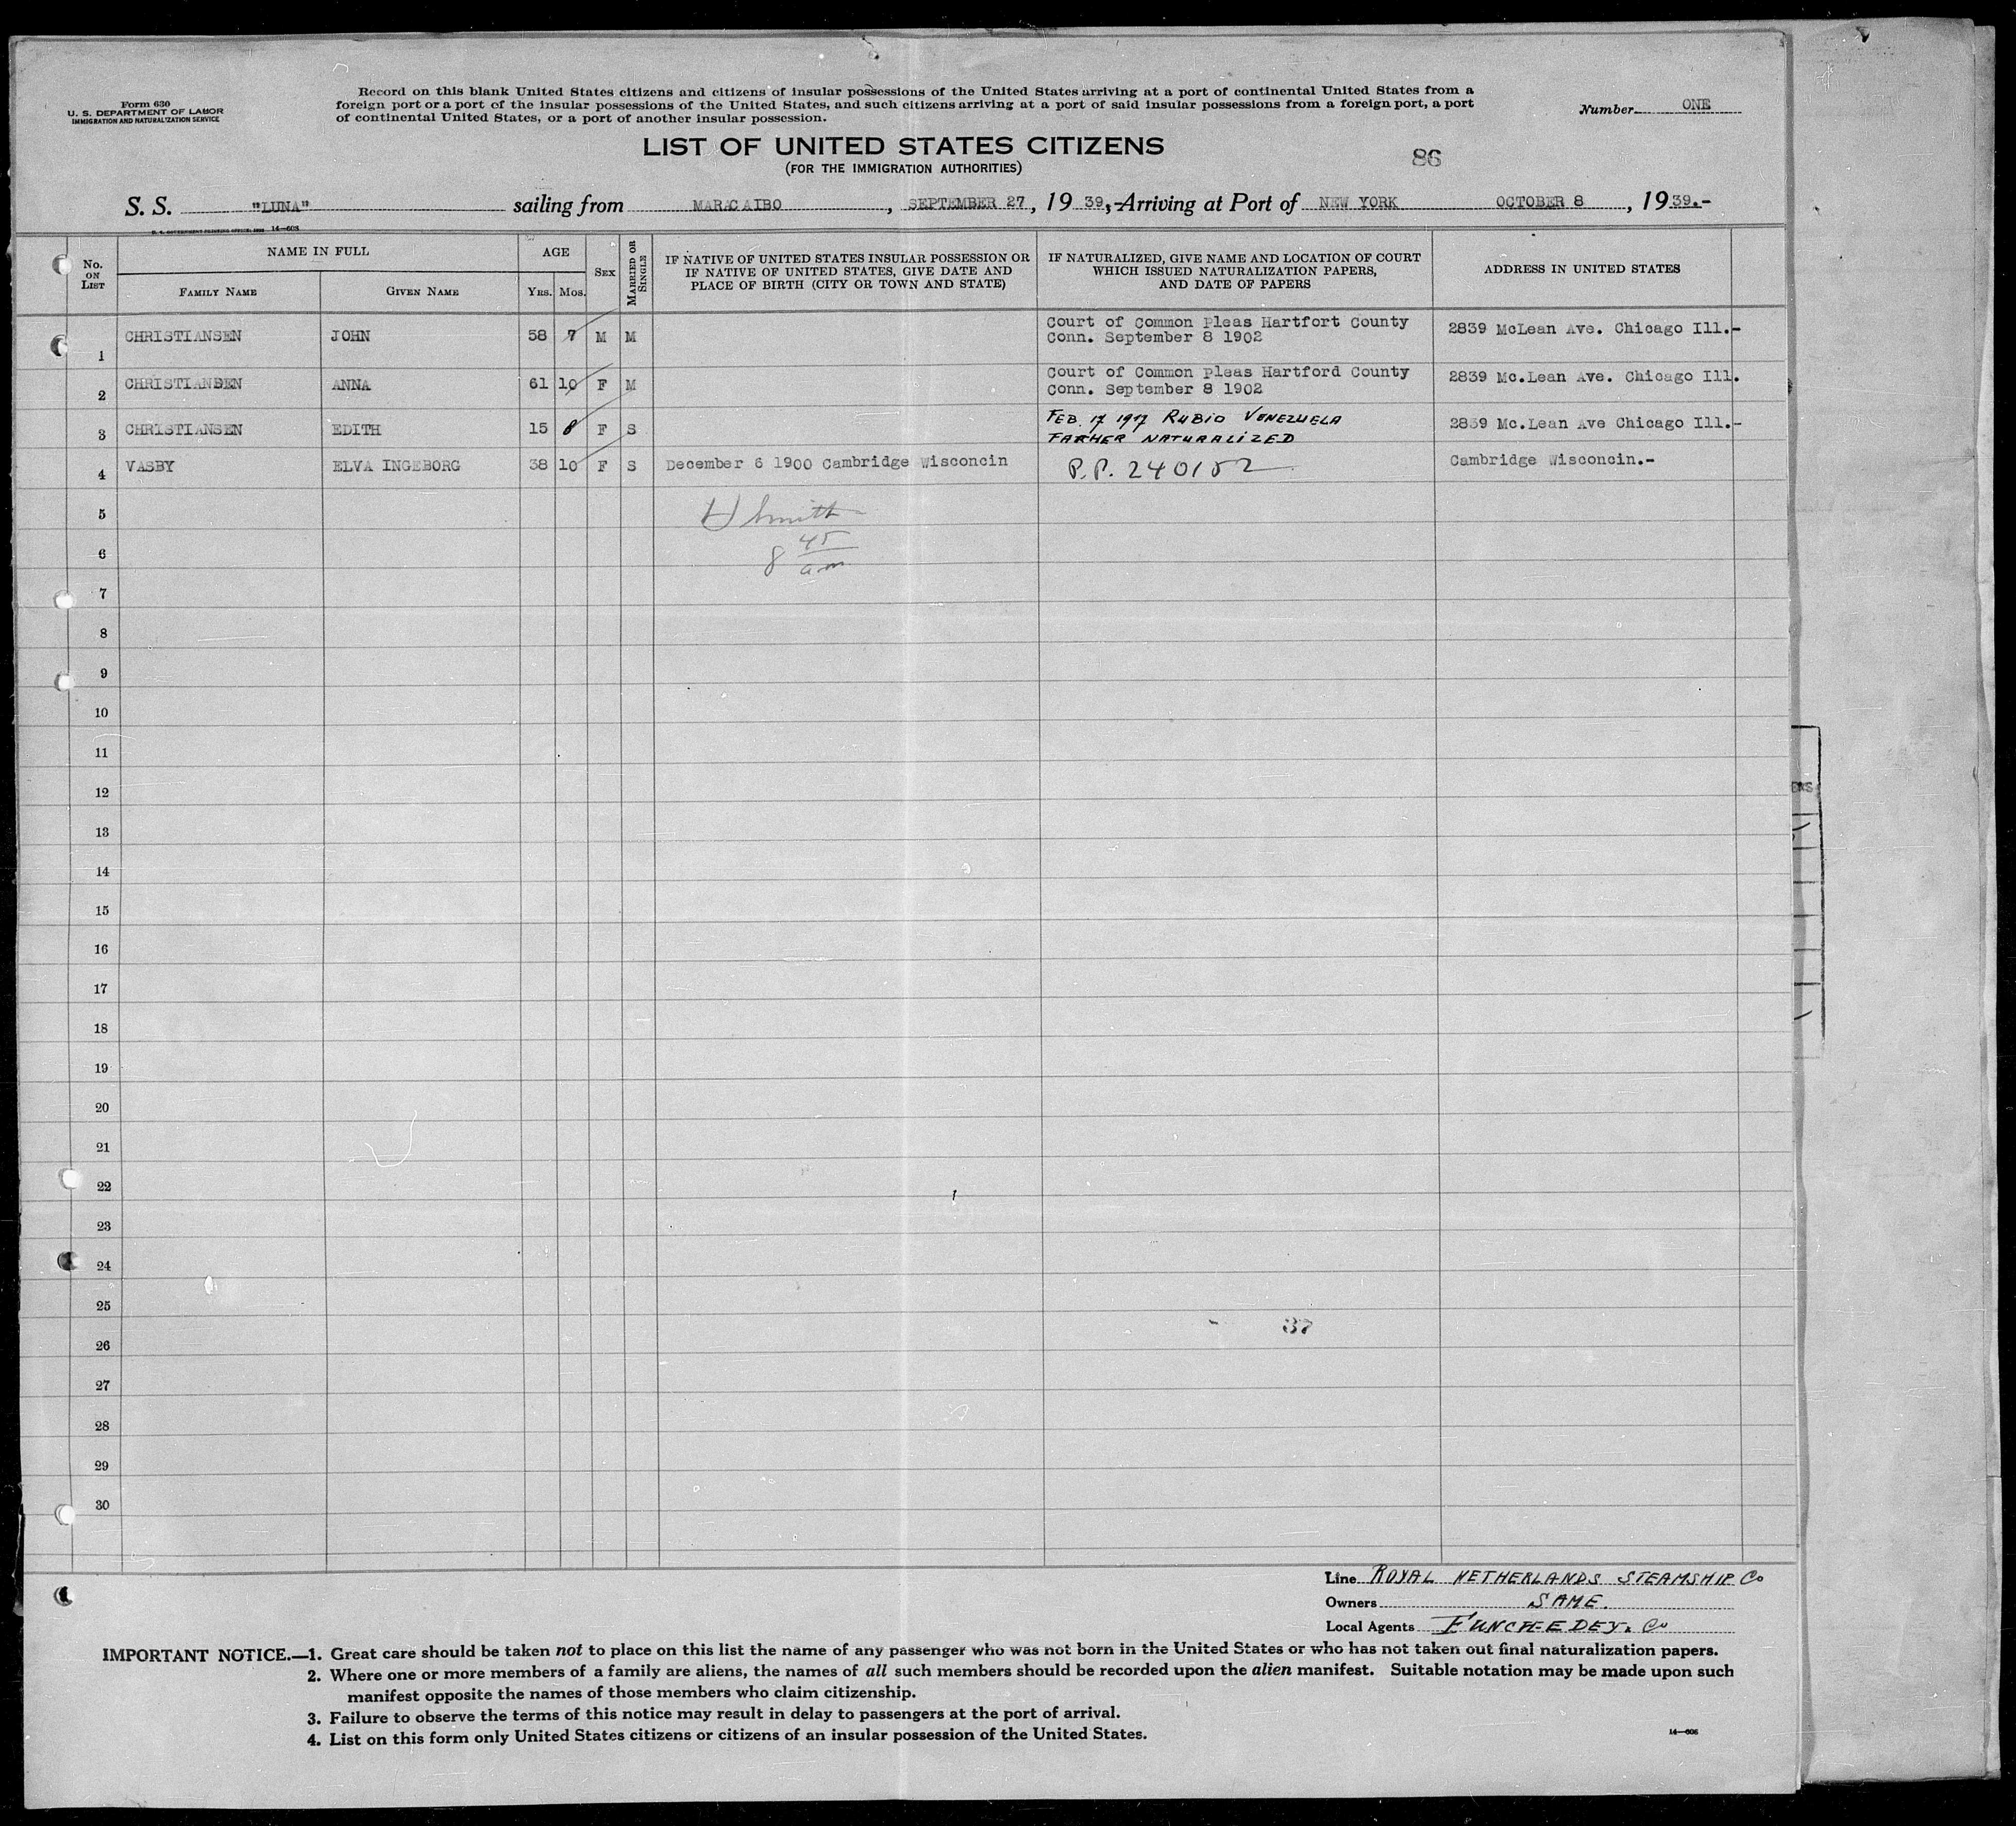 Form 630
U. S. DEPARTMENT OF LABOR
IMMIGRATION AND NATURALIZATION SERVICE
Record on this blank United States citizens and citizens of insular possessions of the United States arriving at a port of continental United States from a
foreign port or a port of the insular possessions of the United States, and such citizens arriving at a port of said insular possessions from a foreign port, a port
of continental United States, or a port of another insular possession.
Number ONE
LIST OF UNITED STATES CITIZENS
(FOR THE IMMIGRATION AUTHORITIES)
86
S. S. "LUNA" sailing from MARACAIBO, SEPTEMBER 27, 1939,-Arriving at Port of NEW YORK OCTOBER 8, 1939.-
U. S. GOVERNMENT PRINTING OFFICE: 14—608
No. ON LIST
NAME IN FULL
FAMILY NAME GIVEN NAME
AGE
YRS. MOS.
SEX
MARRIED OR SINGLE
IF NATIVE OF UNITED STATES INSULAR POSSESSION OR
IF NATIVE OF UNITED STATES, GIVE DATE AND
PLACE OF BIRTH (CITY OR TOWN AND STATE)
IF NATURALIZED, GIVE NAME AND LOCATION OF COURT
WHICH ISSUED NATURALIZATION PAPERS,
AND DATE OF PAPERS
ADDRESS IN UNITED STATES
1 CHRISTIANSEN JOHN 58 7 M M Court of Common Pleas Hartfort County 2839 McLean Ave. Chicago Ill.-
Conn. September 8 1902
2 CHRISTIANSEN ANNA 61 10 F M Court of Common Pleas Hartford County 2839 Mc.Lean Ave. Chicago Ill.
Conn. September 8 1902
3 CHRISTIANSEN EDITH 15 8 F S FEB. 17 19 RUBIO VENEZUELA 2839 Mc.Lean Ave Chicago Ill.-
FATHER NATURALIZED
4 VASBY ELVA INGEBORG 38 10 F S December 6 1900 Cambridge Wisconcin P.P. 240152 Cambridge Wisconcin.-
5 H Smith
6 8 45 am
7
8
9
10
11
12
13
14
15
16
17
18
19
20
21
22
23
24
25
37
26
27
28
29
30
Line ROYAL NETHERLANDS STEAMSHIP Co
Owners SAME.
Local Agents FUNCH EDEY. Co
IMPORTANT NOTICE.—1. Great care should be taken not to place on this list the name of any passenger who was not born in the United States or who has not taken out final naturalization papers.
2. Where one or more members of a family are aliens, the names of all such members should be recorded upon the alien manifest. Suitable notation may be made upon such
manifest opposite the names of those members who claim citizenship.
3. Failure to observe the terms of this notice may result in delay to passengers at the port of arrival.
4. List on this form only United States citizens or citizens of an insular possession of the United States.
14—608